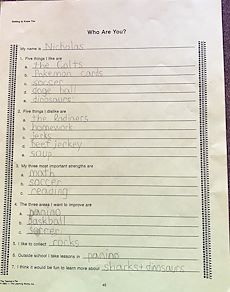 Getting to Know You
Who Are You?
My name is Nicholas
1. Five things I like are
a. the Colts
b. Pokemon cards
c. soccer
d. doge ball
e. dinosaurs
2. Five things I dislike are
a. the
b. homework
c. jerks
d. beef jerkey
e. soup
3. My three most important strengths are
a. math
b. soccer
c. reading
4. The three areas I want to improve are
a.
b. Baskball
c. soccer
5. I like to collect rocks
6. Outside school I take lessons in
7. I think it would be fun to learn more about sharks + dinosaurs